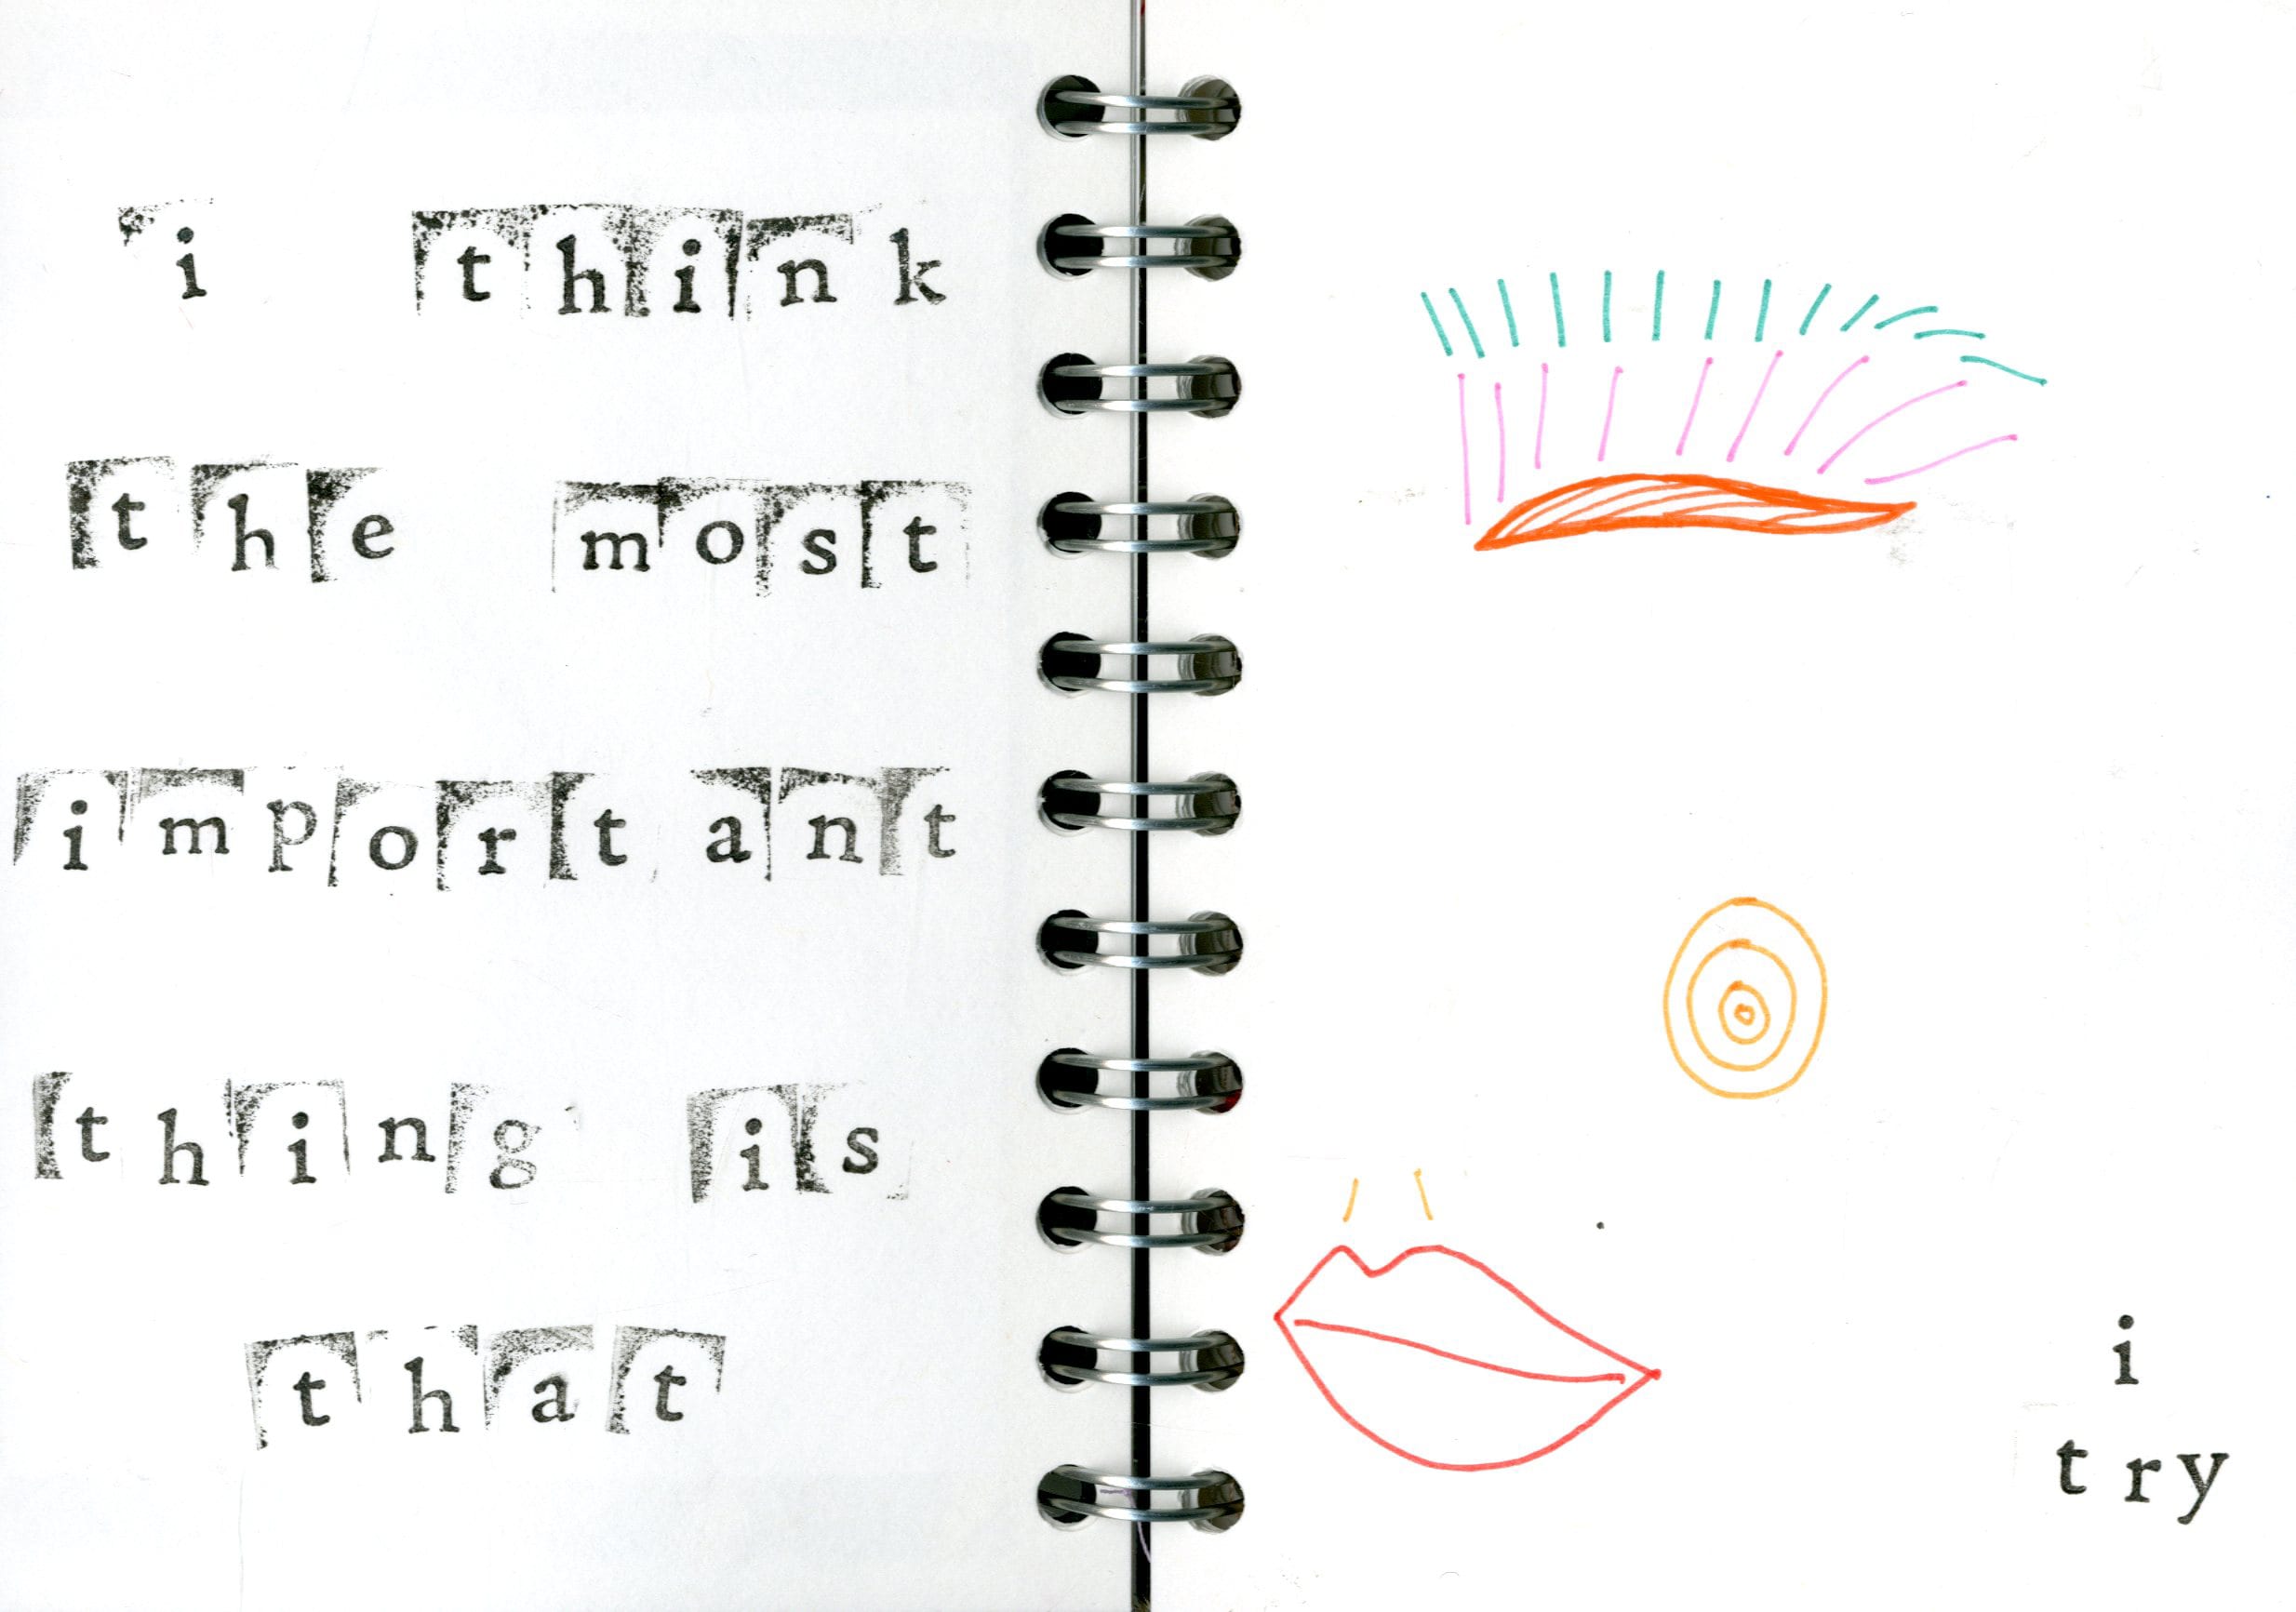 i think
the most
important
thing is
that
i
try